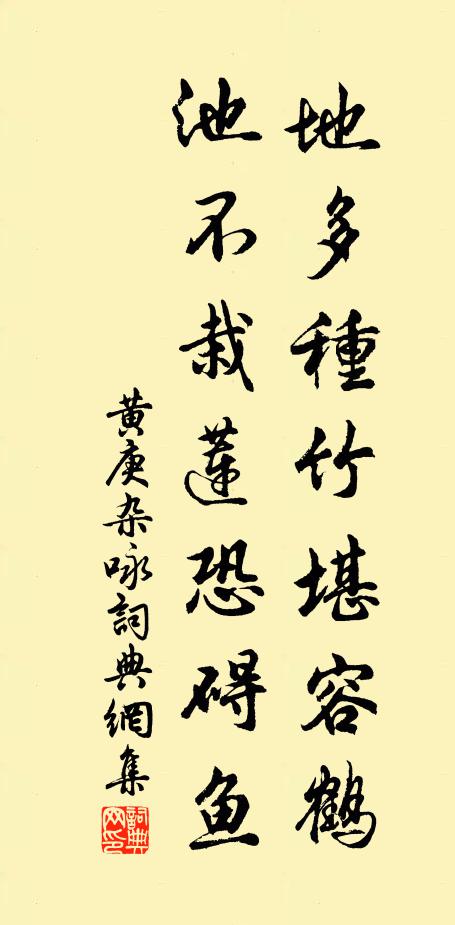 地多種竹堪容鶴
池不栽蓮恐碍魚
黄庚杂咏詞典網集
詞典網印